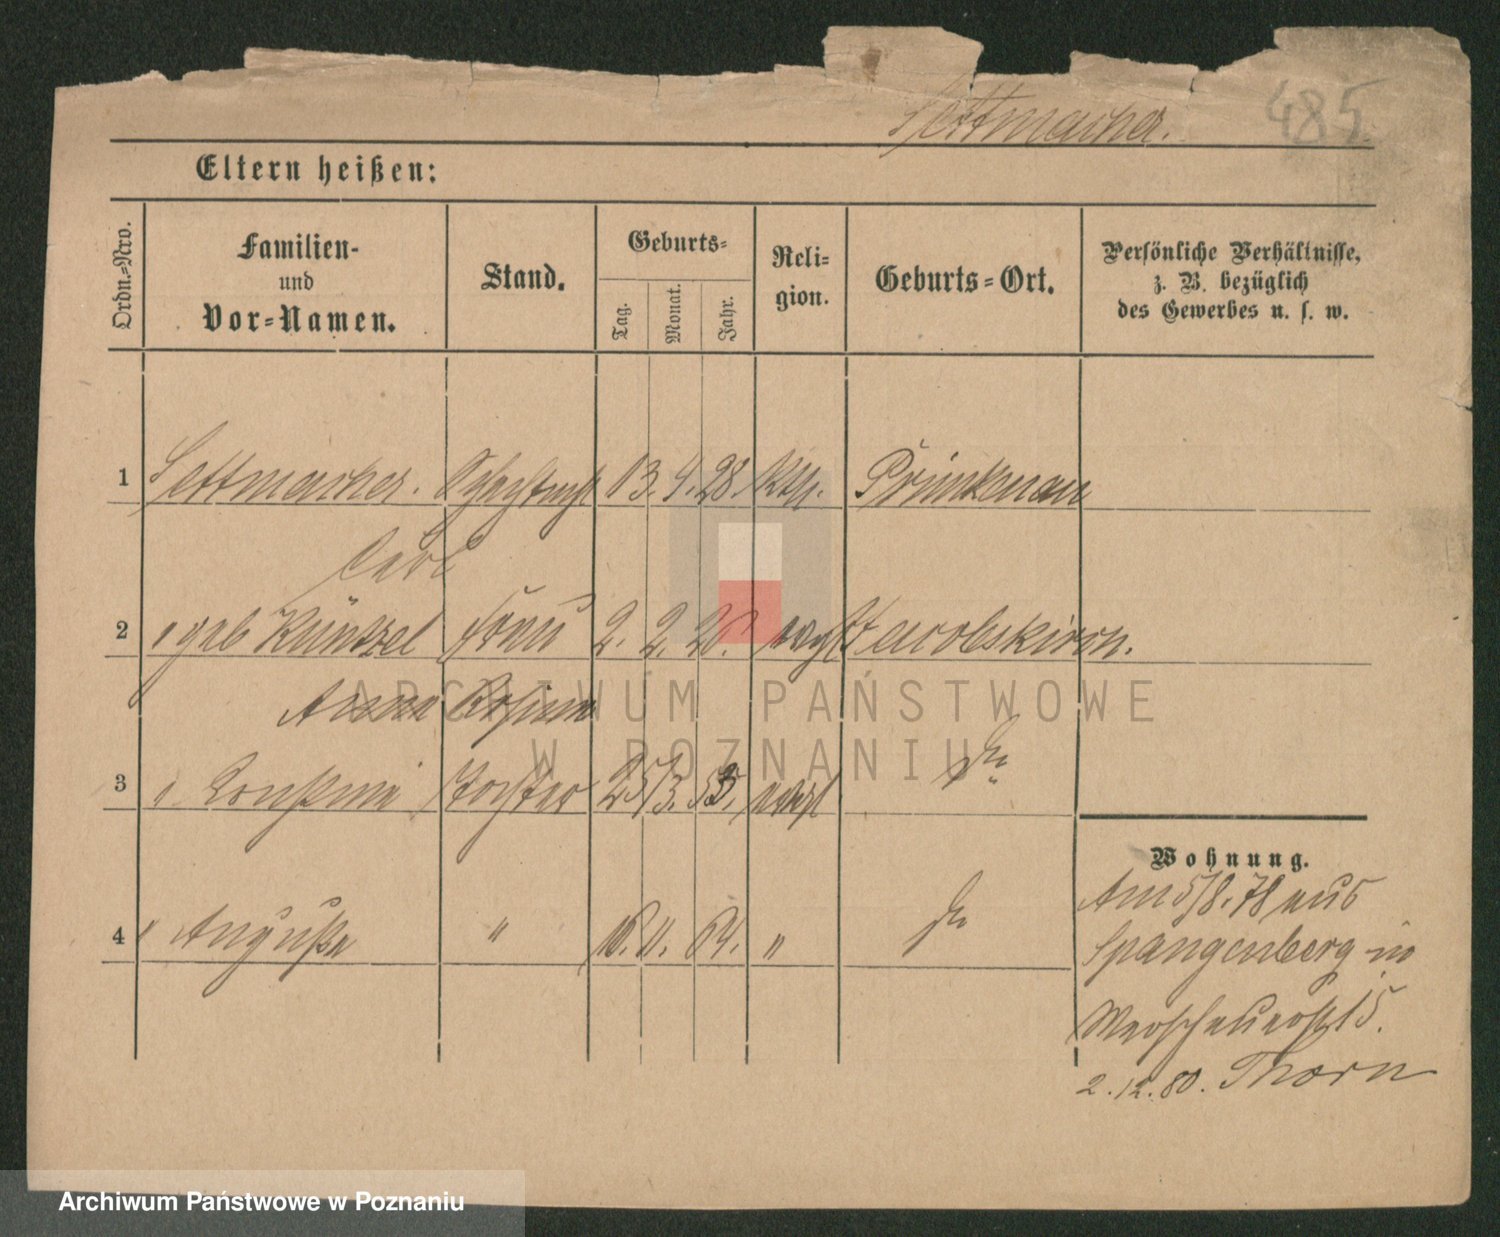 Settmacher.
485.
Eltern heißen:
Ordn.-Nro.
Familien-
und
Vor-Namen.
Stand.
Geburts-
Tag.
Monat.
Jahr.
Reli-
gion.
Geburts-Ort.
Persönliche Verhältnisse,
z. B. bezüglich
des Gewerbes u. s. w.
1 Settmacher. 13. 4. 28. Kth. Prinkenau
Carl
2 " geb Küntzel Frau 2. 2. 20. evgl
Anna Rosina
3 " Tochter 25/3. 53. evgl do
4 " Auguste " 16. 11. 64. " do
Wohnung.
Am 5/8. 78 aus
Spangenberg in
15.
2. 12. 80. Thorn
ARCHIWUM PAŃSTWOWE
W POZNANIU
Archiwum Państwowe w Poznaniu